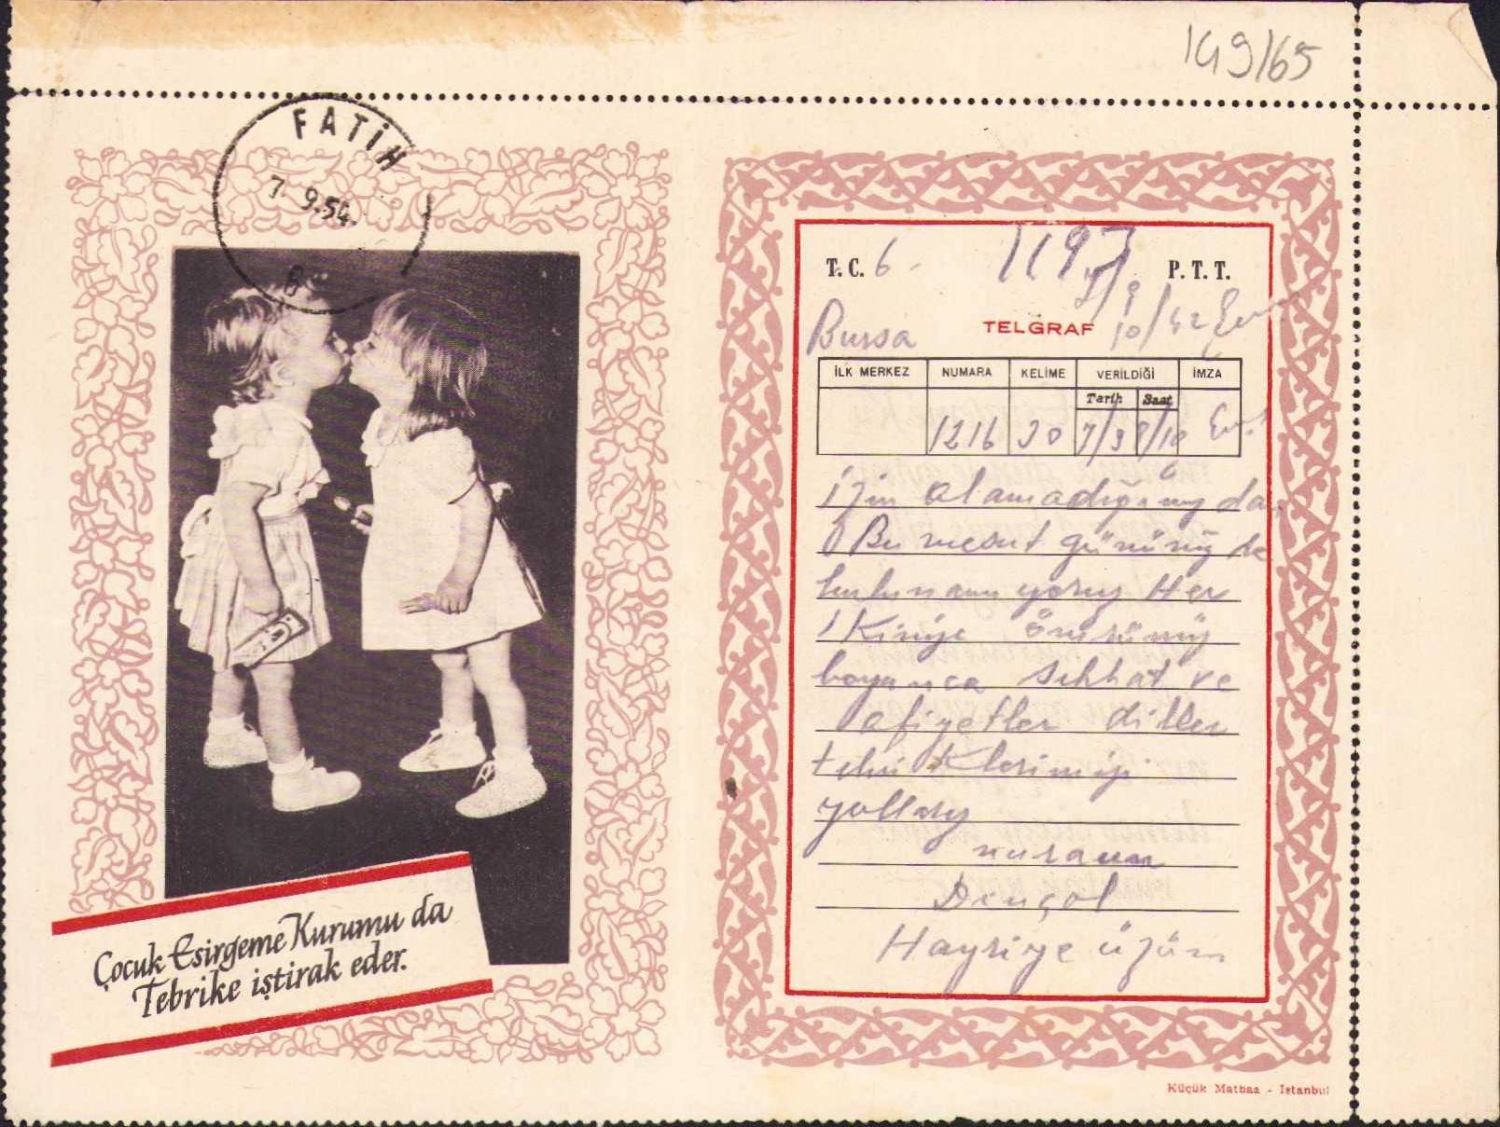 149/65
FATİH
7.9.54.
T.C. 6 1197 P.T.T.
Bursa TELGRAF 10/42
İLK MERKEZ NUMARA KELİME VERİLDİĞİ İMZA
Tarih Saat
1216 30 7/9 8/10
izin alamadığımızdan
Bu mesut gününüzde
bulunamıyoruz Her
İkinize ömrünüz
boyunca sıhhat ve
afiyetler diller
tebriklerimizi
yollarız
Dinçol
Hayriye üzüm
Çocuk Esirgeme Kurumu da
Tebrike iştirak eder.
Küçük Matbaa - İstanbul